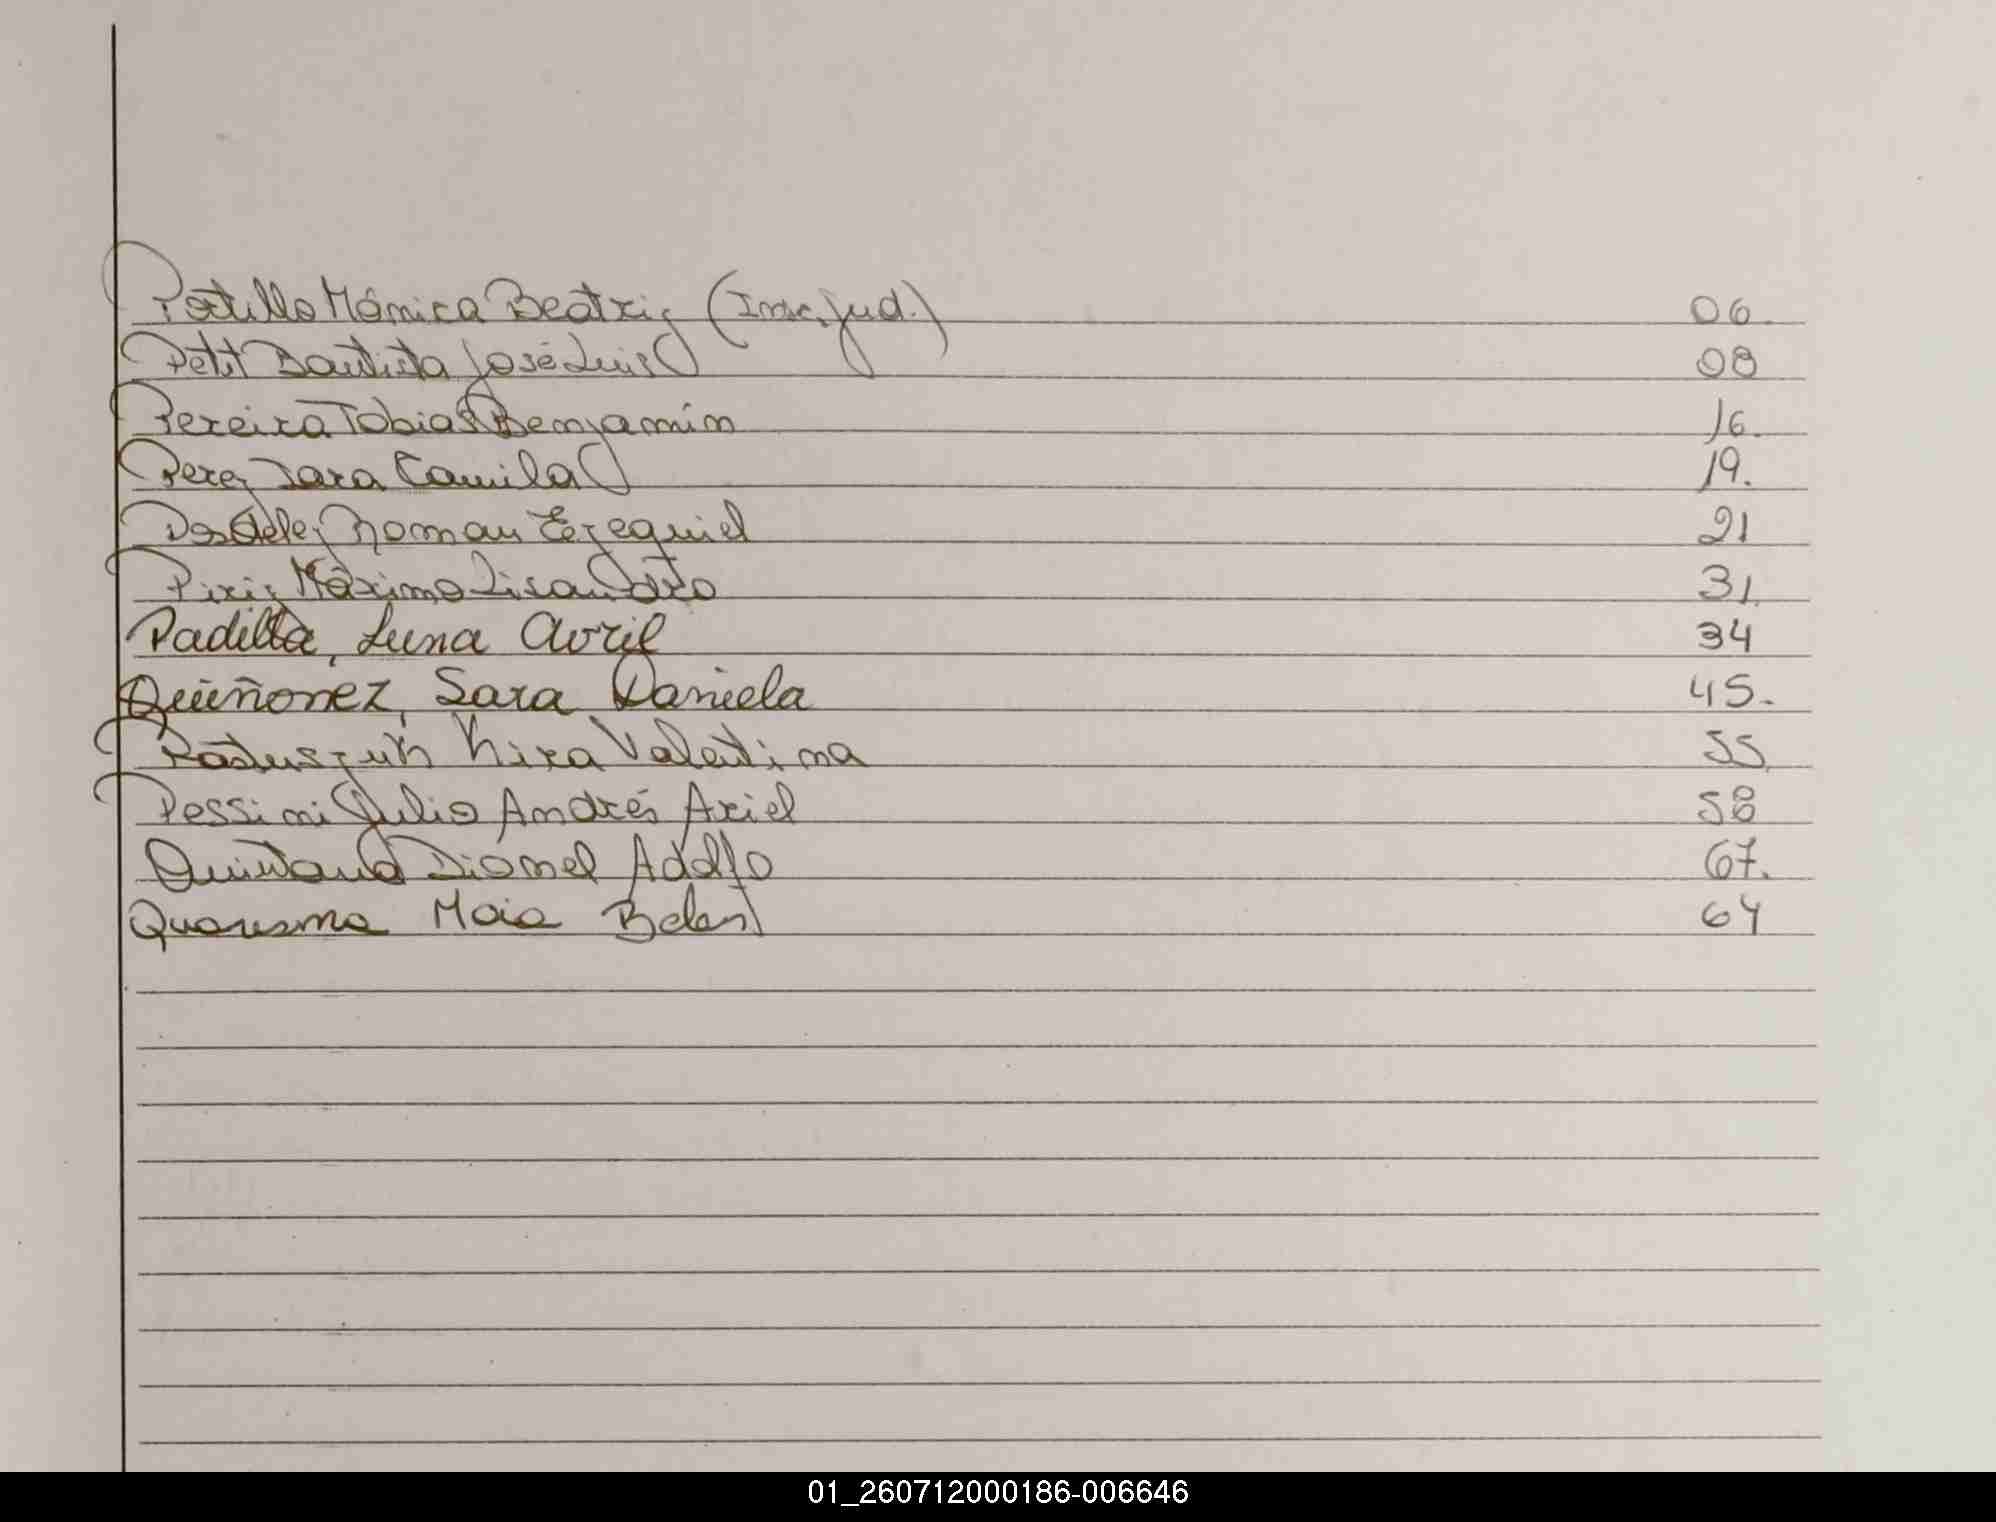 Portillo Mónica Beatriz (Insc. Jud.) 06.
Petit Bautista José Luis 08
Pereira Tobias Benjamín 16.
Perez Sara Camila 19.
Roman Ezequiel 21
Piriz Máximo Lisandro 31.
Padilla, Luna Avril 34
Quiñonez, Sara Daniela 45.
Kira Valentina 55.
Pessini Julio Andrés Ariel 58
Quintana Dionel Adolfo 67.
Quaresma Maia Belen 64
01_260712000186-006646